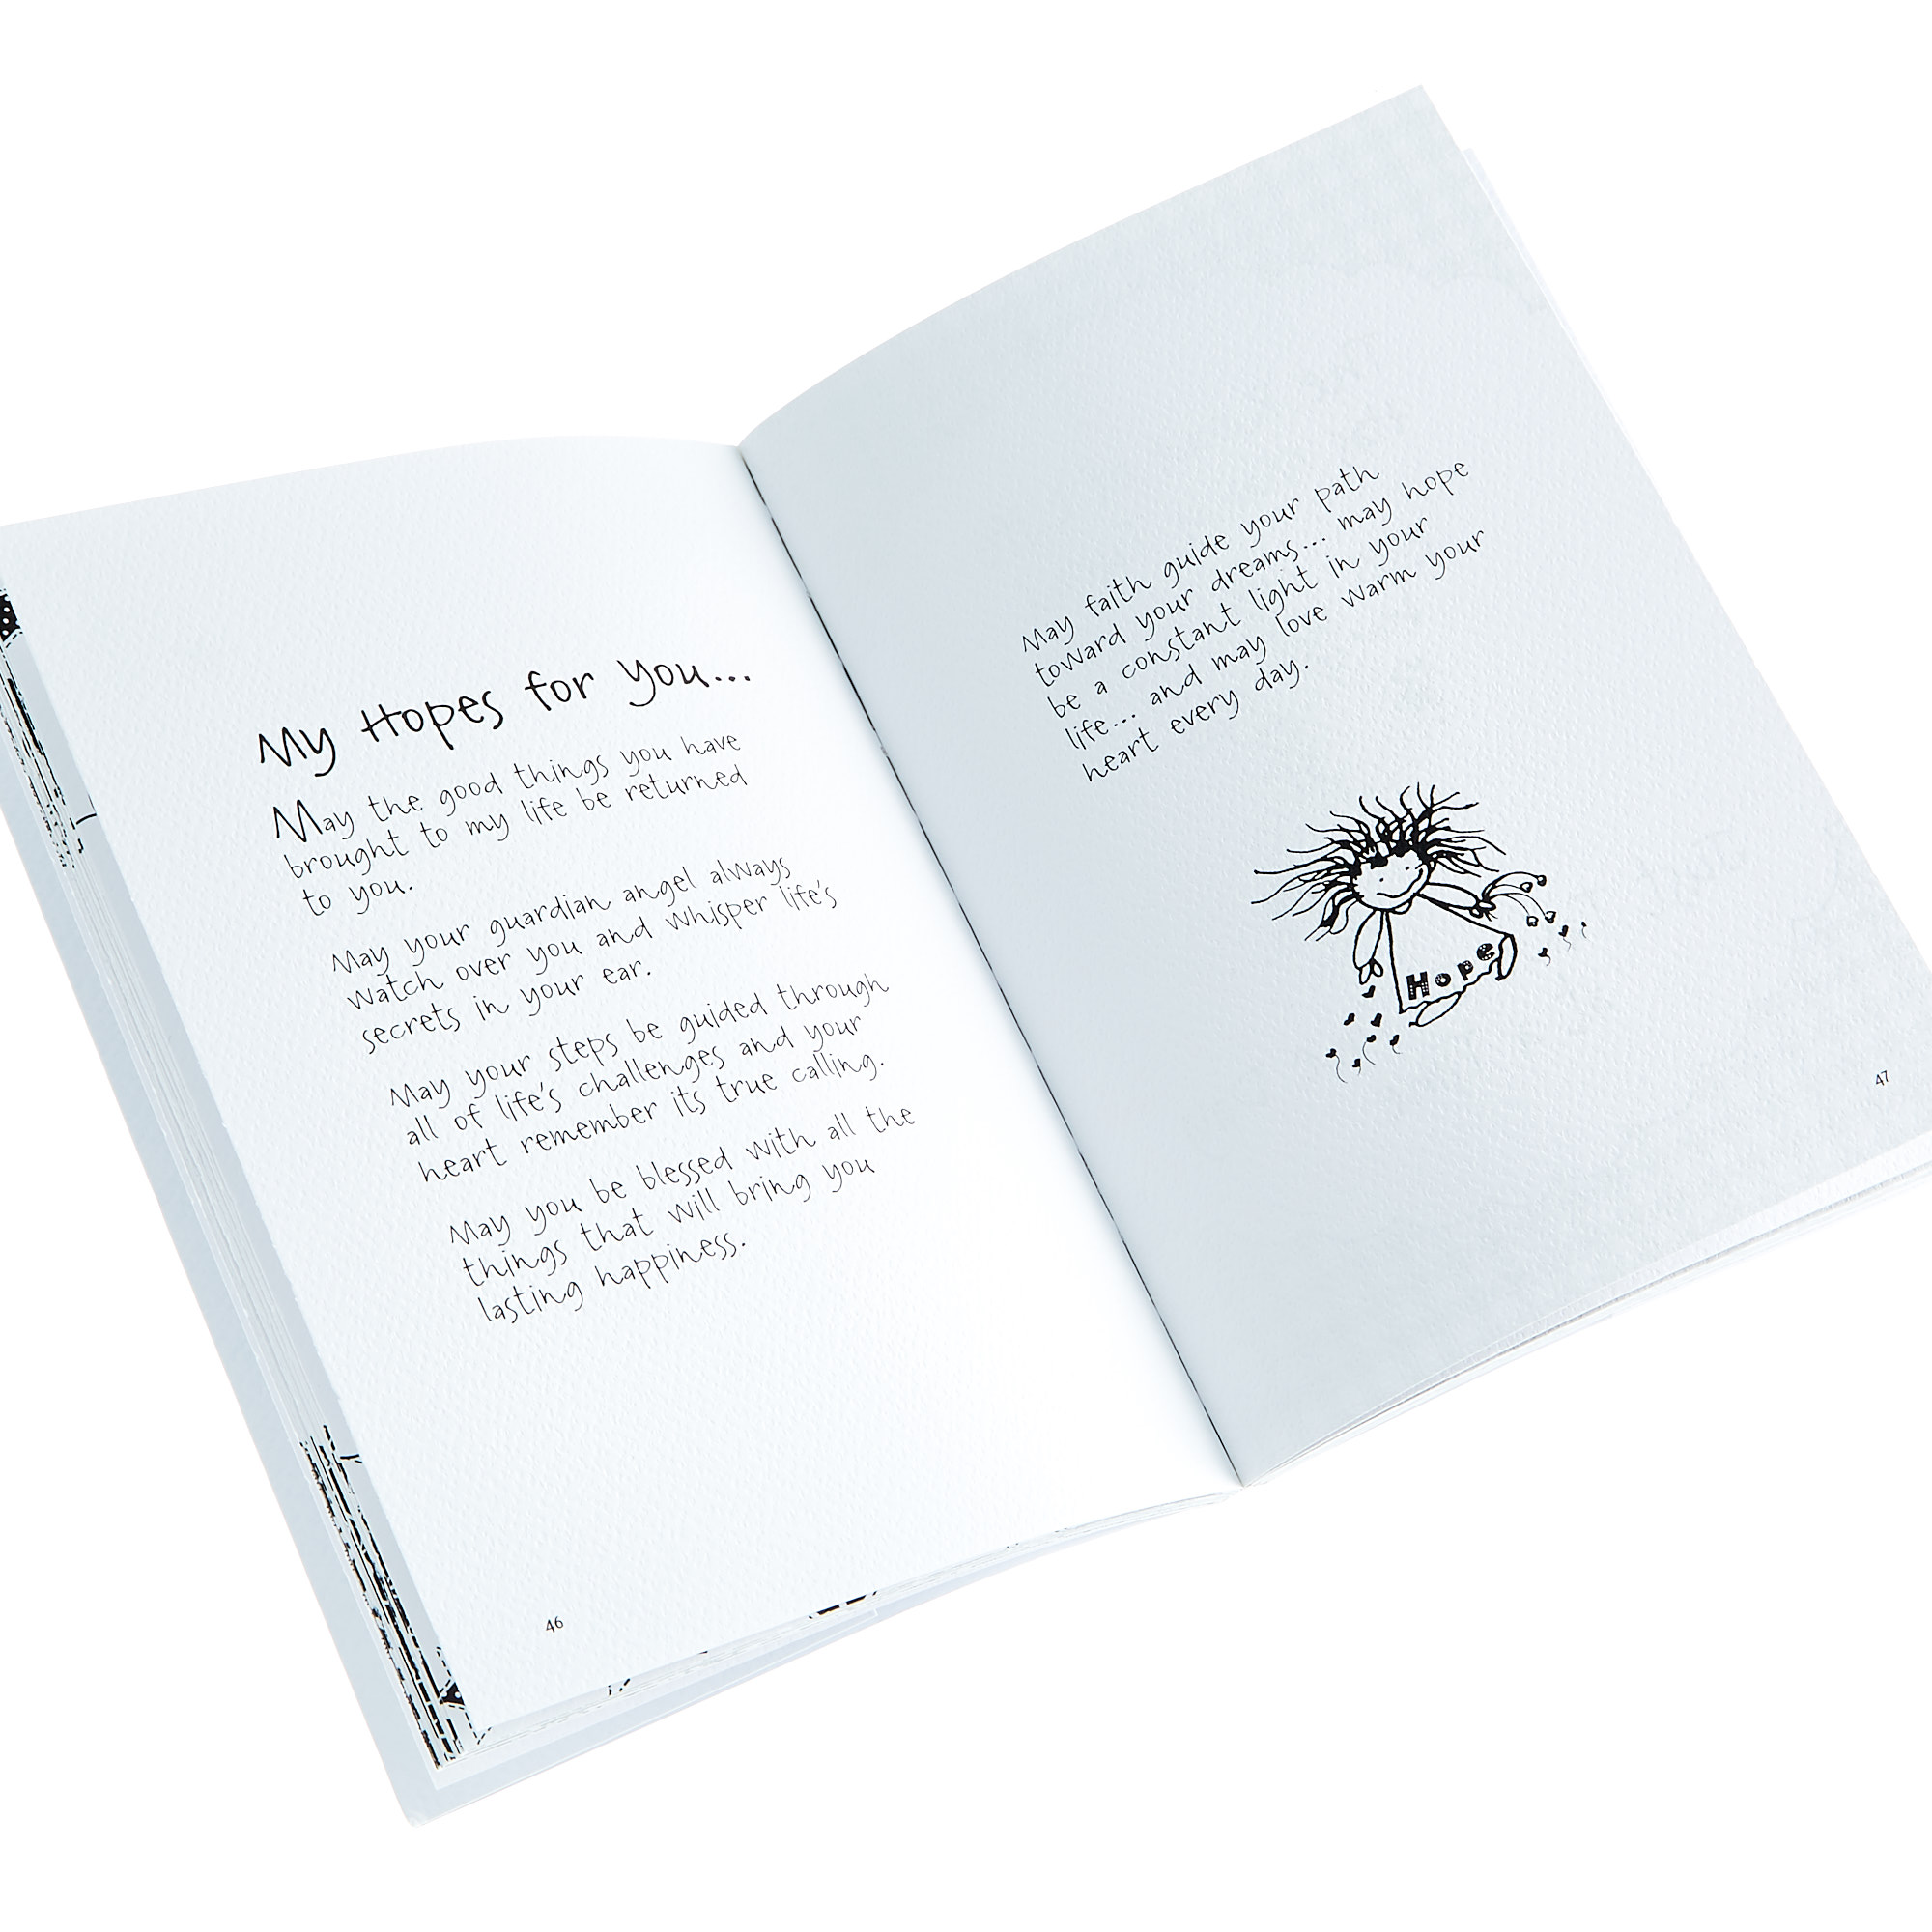 My Hopes for You...
May the good things you have
brought to my life be returned
to you.
May your guardian angel always
watch over you and whisper life's
secrets in your ear.
May your steps be guided through
all of life's challenges and your
heart remember its true calling.
May you be blessed with all the
things that will bring you
lasting happiness.
46
May faith guide your path
toward your dreams... may hope
be a constant light in your
life... and may love warm your
heart every day.
Hope
47